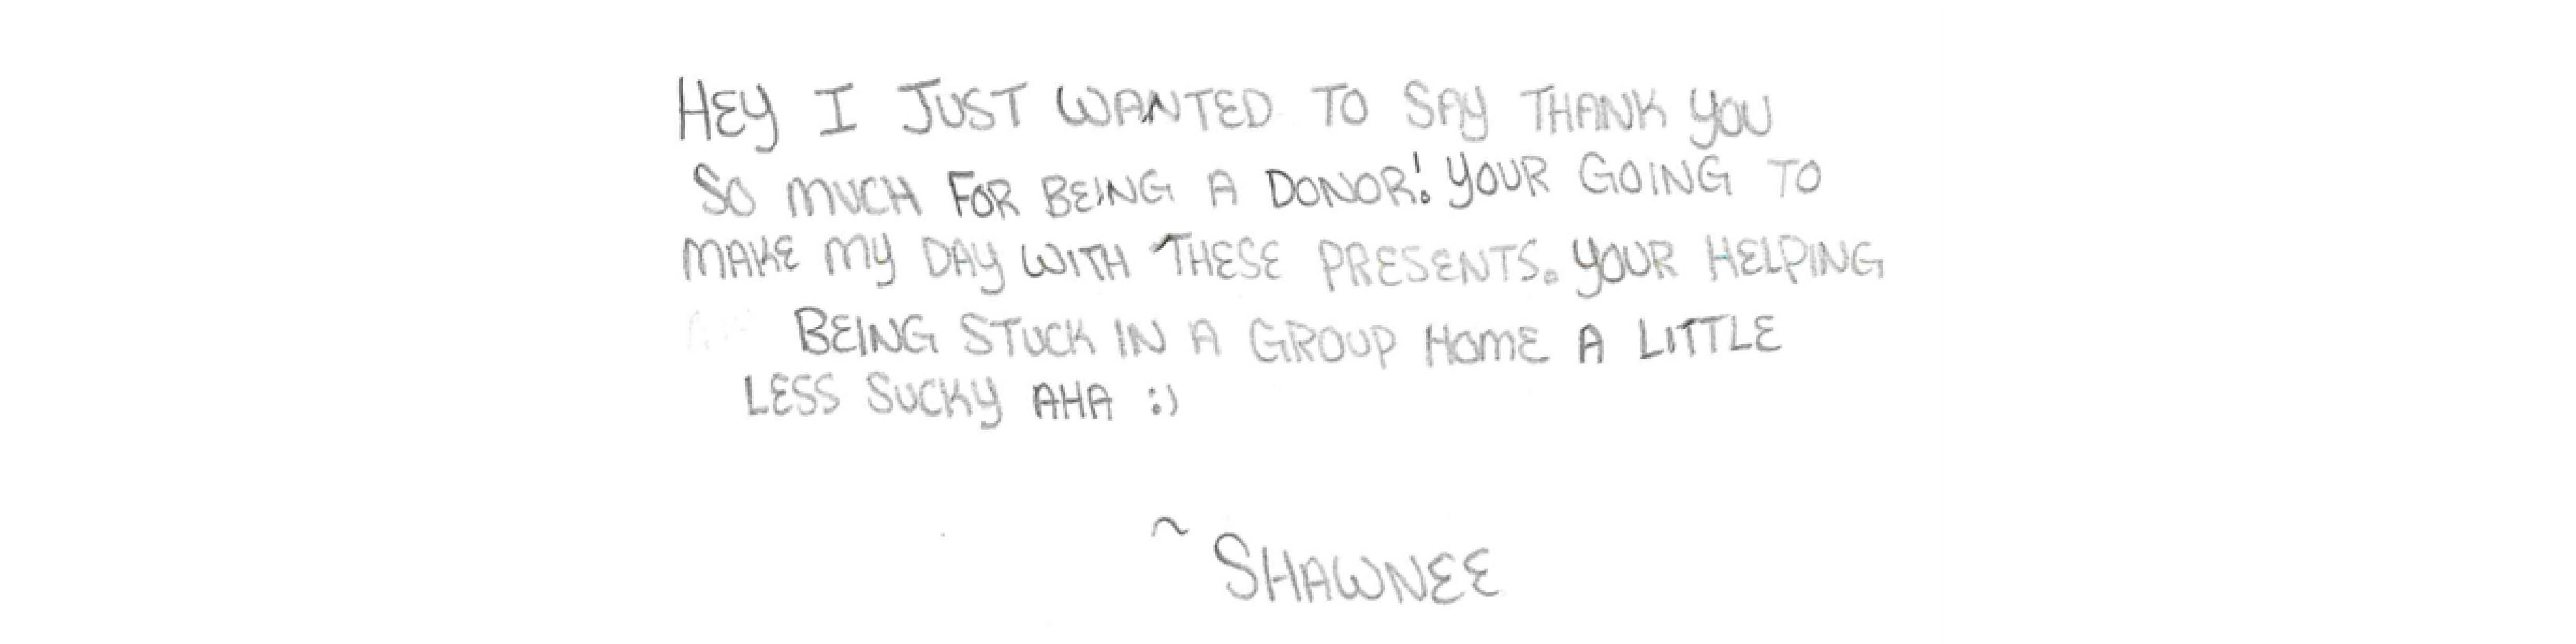 HEY I JUST WANTED TO SAY THANK YOU
SO MUCH FOR BEING A DONOR! YOUR GOING TO
MAKE MY DAY WITH THESE PRESENTS. YOUR HELPING
BEING STUCK IN A GROUP HOME A LITTLE
LESS SUCKY AHA :)
~ SHAWNEE